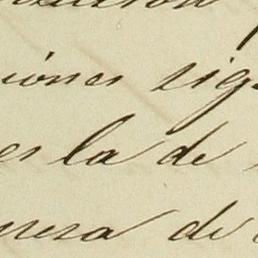 iones sig
es la de
nera de